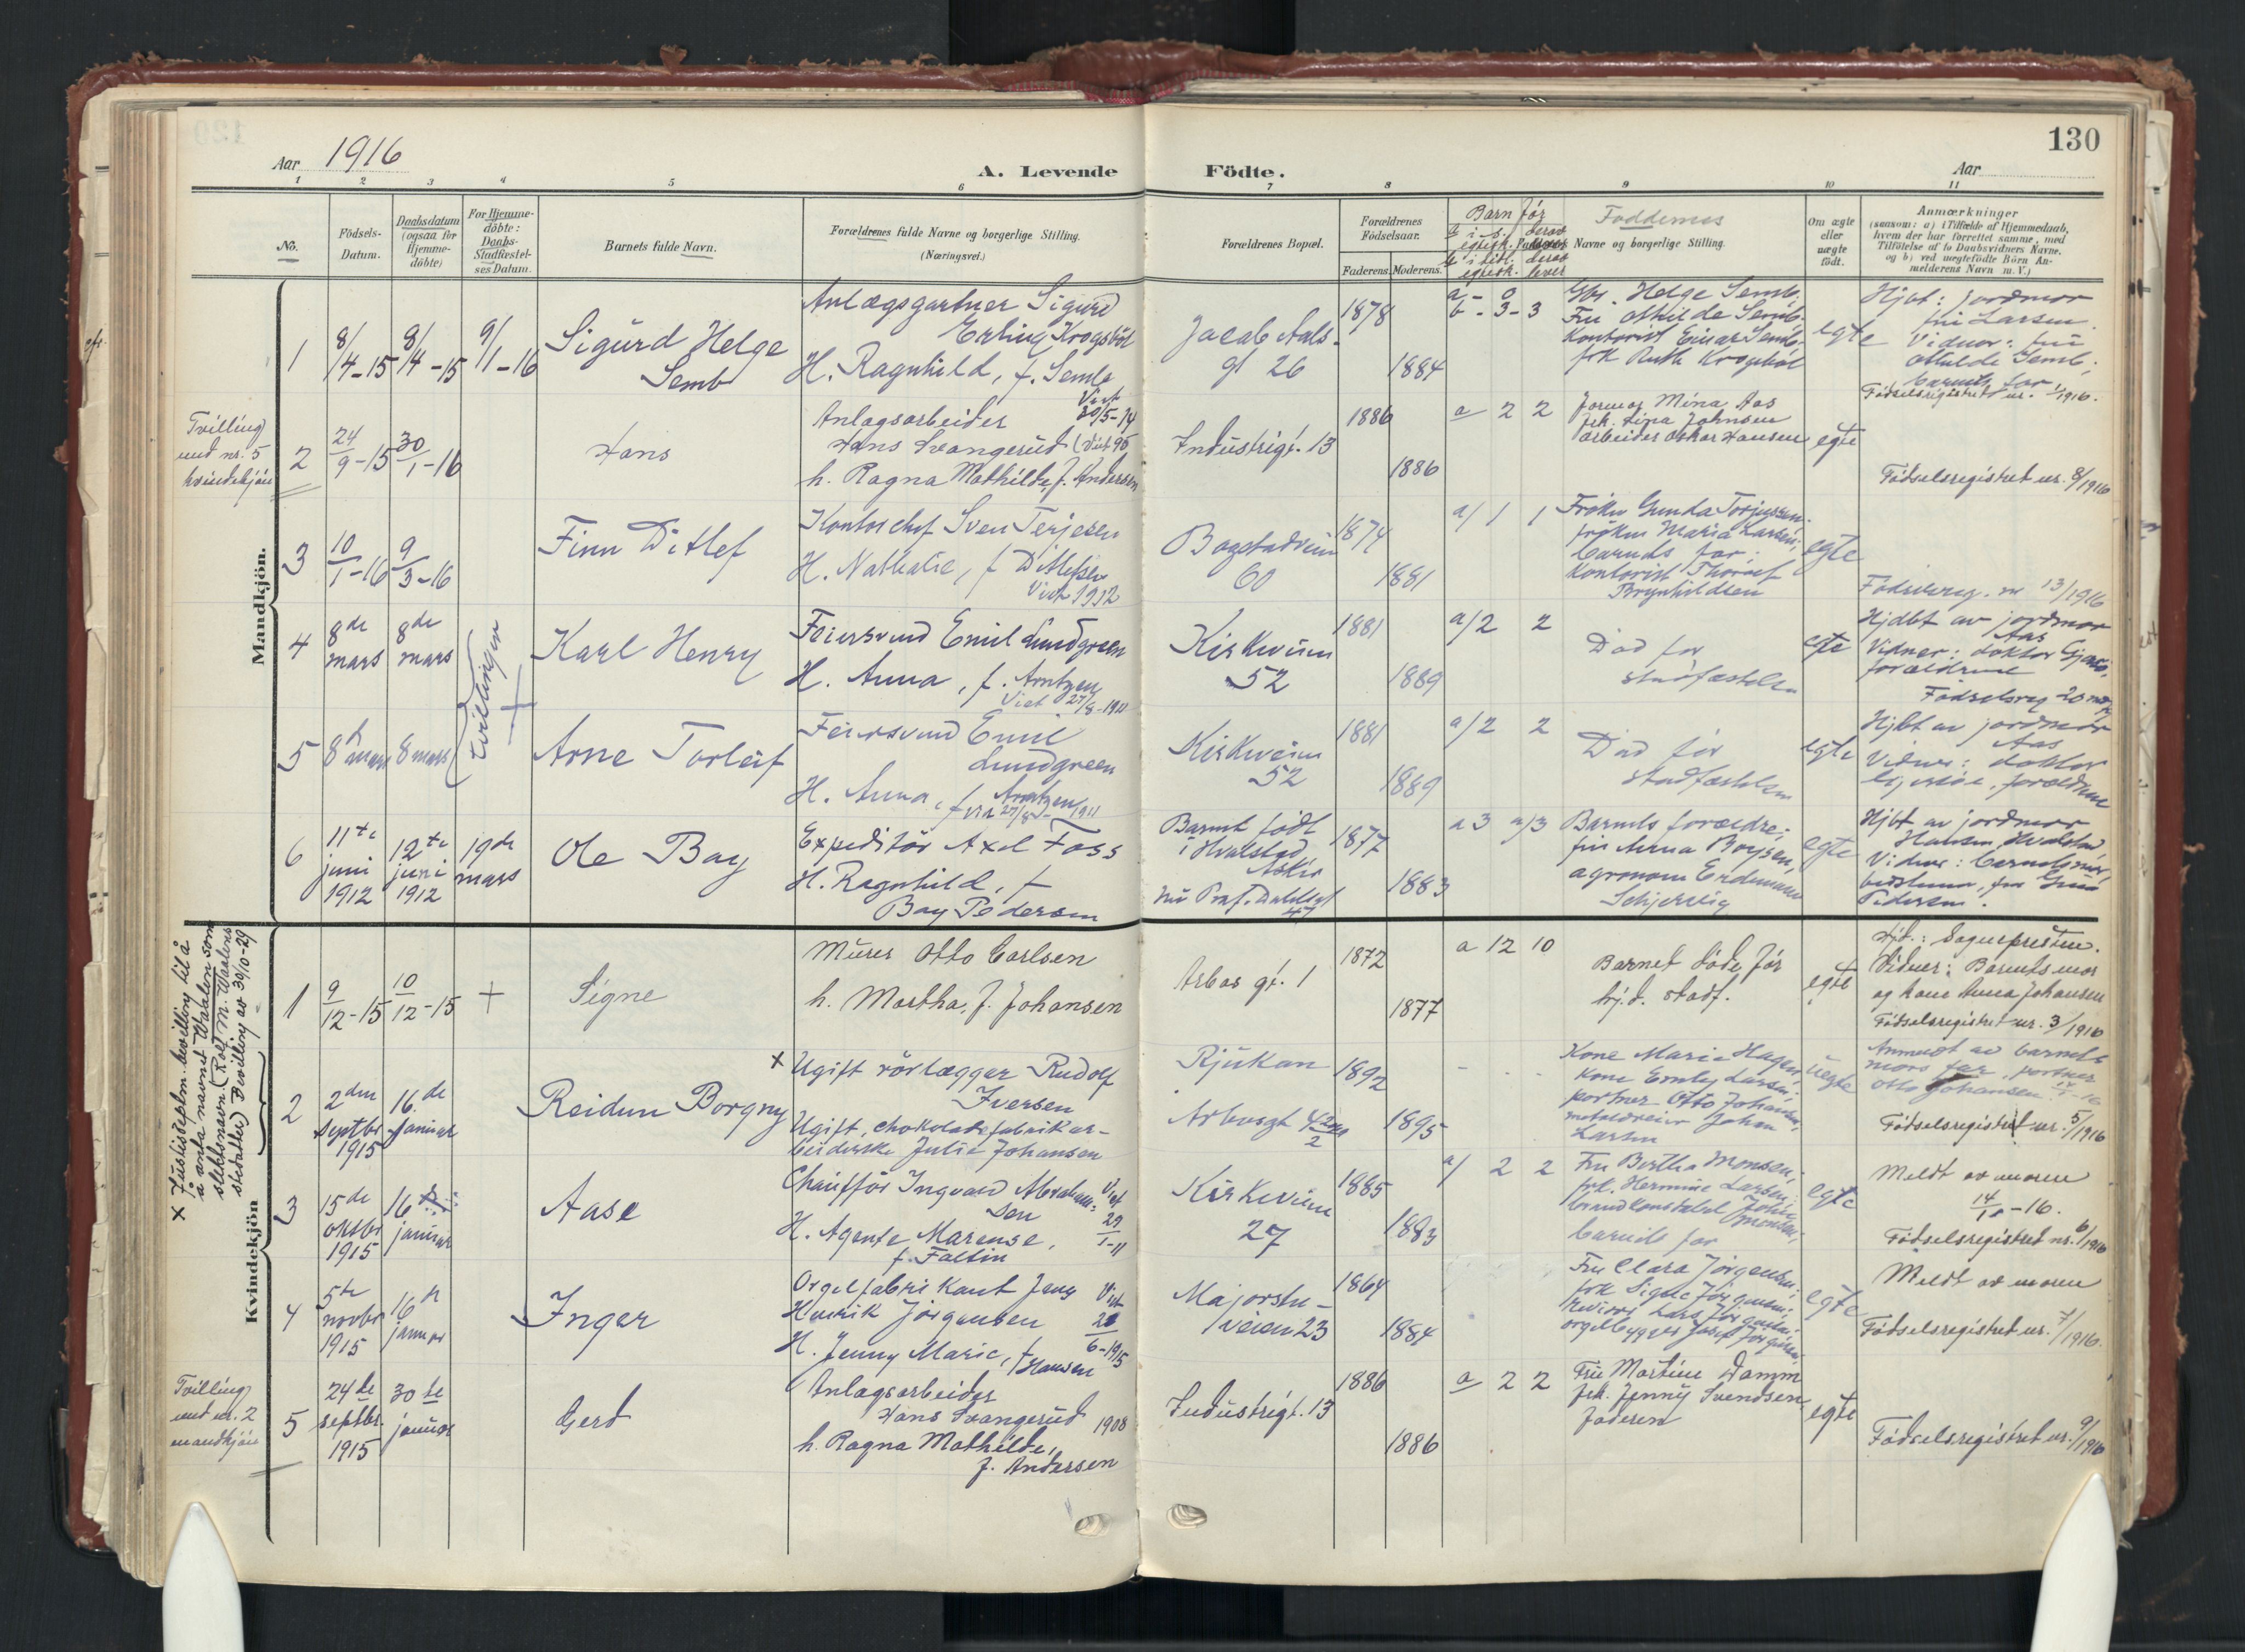 130
Aar 1916
A. Levende Födte.
Aar
1 2 3 4 5 6 7 8 9 10 11
No.
Födsels-
Datum.
Daabsdatum
(ogsaa for
Hjemme-
döbte)
For Hjemme-
döbte:
Daabs-
Stadfæstel-
ses Datum.
Barnets fulde Navn.
Forældrenes fulde Navne og borgerlige Stilling.
(Næringsvei.)
Forældrenes Bopæl.
Forældrenes
Födselsaar.
Faderens. Moderens.
Barn før
Faddernes
Navne og borgerlige Stilling.
Om ægte
eller
uægte
födt.
Anmærkninger
(saasom: a) i Tilfælde af Hjemmedaab,
hvem der har forrettet samme, med
Tilföielse af to Daabsvidners Navne,
og b) ved uægtefödte Börn An-
melderens Navn m. V.)
Mandkjön.
1
8/4-15
8/4-15
9/1-16
Sigurd Helge
Semb
Anlægsgartner Sigurd
Erling Krogsböl
H. Ragnhild, f. Semb
Jacob Aals-
gt 26
1878
1884
a - 0
b - 3 - 3
Helge Semb
Fru Othilde Semb
Kontorist Einar Semb
frk Ruth Krogsböl
egte
Hjbt: jordmor
fru Larsen
Vidner: fru
Othilde Semb;
barnets far
Födselsregistret nr. 1/1916.
Tvilling
med nr. 5
kvindekjön
2
24/9-15
30/1-16
Hans
Anlægsarbeider
Hans Svangerud
h. Ragna Mathilde, f. Andersen
Industrigt. 13
1886
1886
a 2 2
Jormor Mina Aas
frk. Lina Johnsen
arbeider Oskar Hansen
egte
Födselsregistret nr. 8/1916
3
10/1-16
9/3-16
Finn Ditlef
Kontorchef Sven Terjesen
H. Nathalie, f Ditlefsen
Viet 1912
Bogstadveien
60
1874
1881
a/ 1 1
Fröken Gunda Torjussen;
fröken Maria Larsen;
barnets far;
Kontorist Thoralf
Brynhildsen
egte
Födselsreg. nr 13/1916
4
8de
mars
8de
mars
tvillinger
Karl Henry
Feiersvend Emil Lundgreen
H. Anna, f. Arntzen
Viet 27/8-1911
Kirkeveien
52
1881
1889
a/2 2
Död før
stadfæstelsen
egte
Hjdbt av jordmor
Aas
Vidner: doktor
forældrene
Födselsreg 20
5
8 mars
8 mars
Arne Torleif
Feiersvend Emil
Lundgreen
H. Anna, f Arntzen
viet 27/8-1911
Kirkeveien
52
1881
1889
a/2 2
Död før
stadfæstelsen
egte
Hjbt av jordmor
Aas
Vidner: doktor
forældrene
6
11te
juni
1912
12te
juni
1912
19de
mars
Ole Bay
Expeditör Axel Foss
H. Ragnhild, f
Bay Pedersen
Barnet födt
i Hvalstad
Asker
1877
1883
a 3 a/3
Barnets forældre;
fru Anna Boysen,
agronom
egte
Hjbt av jordmor
Hansen, Hvalstad
Vidner: barnets mor
Pedersen.
Kvindekjön
x Justisdeptm. bevilling til å
å anta navnet Waalen som
slektsnavn. (Rolf M. Waalens
stedatter) Bevilling av 30/10-29
1
9/12-15
10/12-15
+
Signe
Murer Otto Carlsen
h. Martha, f. Johansen
Arbos gt. 1
1872
1877
a 12 10
Barnet döde før
hj.d. stadf.
egte
Hjd.: Sognepresten.
Vidner: Barnets mor
og kone Anna Johansen
Födselsregistret nr. 3/1916
2
2den
septbr
1915
16.de
januar
Reidun Borgny
x Ugift rörlægger Rudolf
Iversen
Ugift, chokoladefabrikar-
beiderske Julie Johansen
Rjukan
Arbosgt
1892
1895
Kone Marie Hagen,
Kone Emly Larsen;
portner Otto Johansen,
metaldreier Johan
Larsen
uegte
Anmeldt av barnets
mors far, portner
Otto Johansen
Födselsregistret nr. 5/1916
3
15de
oktbr
1915
16
januar
Aase
Chauffør Ingvald Abraham-
sen
Viet
29/1-11
H. Agente Marense,
f. Faltin
Kirkeveien
27
1885
1883
a/ 2 2
Fru Bertha Monsen;
frk. Hermine Larsen;
brandkonstabel
barnets far
egte
Meldt av moren
14/1-16.
Födselsregistret nr. 6/1916
4
5te
novbr
1915
16
januar
Inger
Orgelfabrikant Jens
Henrik Jörgensen
H. Jenny Marie, f
Hansen
Viet
6-1915
Majorstu-
veien 23
1864
1884
Fru Clara Jörgensen;
frk Signe Jörgensen;
orgelbygger
egte
Meldt av moren
Födselsregistret nr. 7/1916.
Tvilling
med nr. 2
mandkjön
5
24de
septbr.
1915
30te
januar
Gerd
Anlægsarbeider
Hans Svangerud 1908
h. Ragna Mathilde,
f. Andersen
Industrigt. 13
1886
1886
a 2 2
Fru Martine Damm
frk. Jenny Svendsen
Faderen
egte
Födselsregistret nr. 9/1916